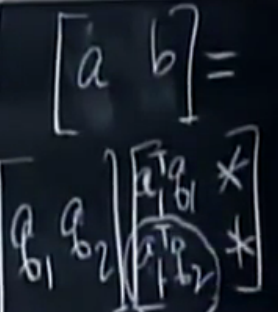 [a b] =
[q₁ q₂] [a₁ᵀq₁ *
a₁ᵀq₂ *]